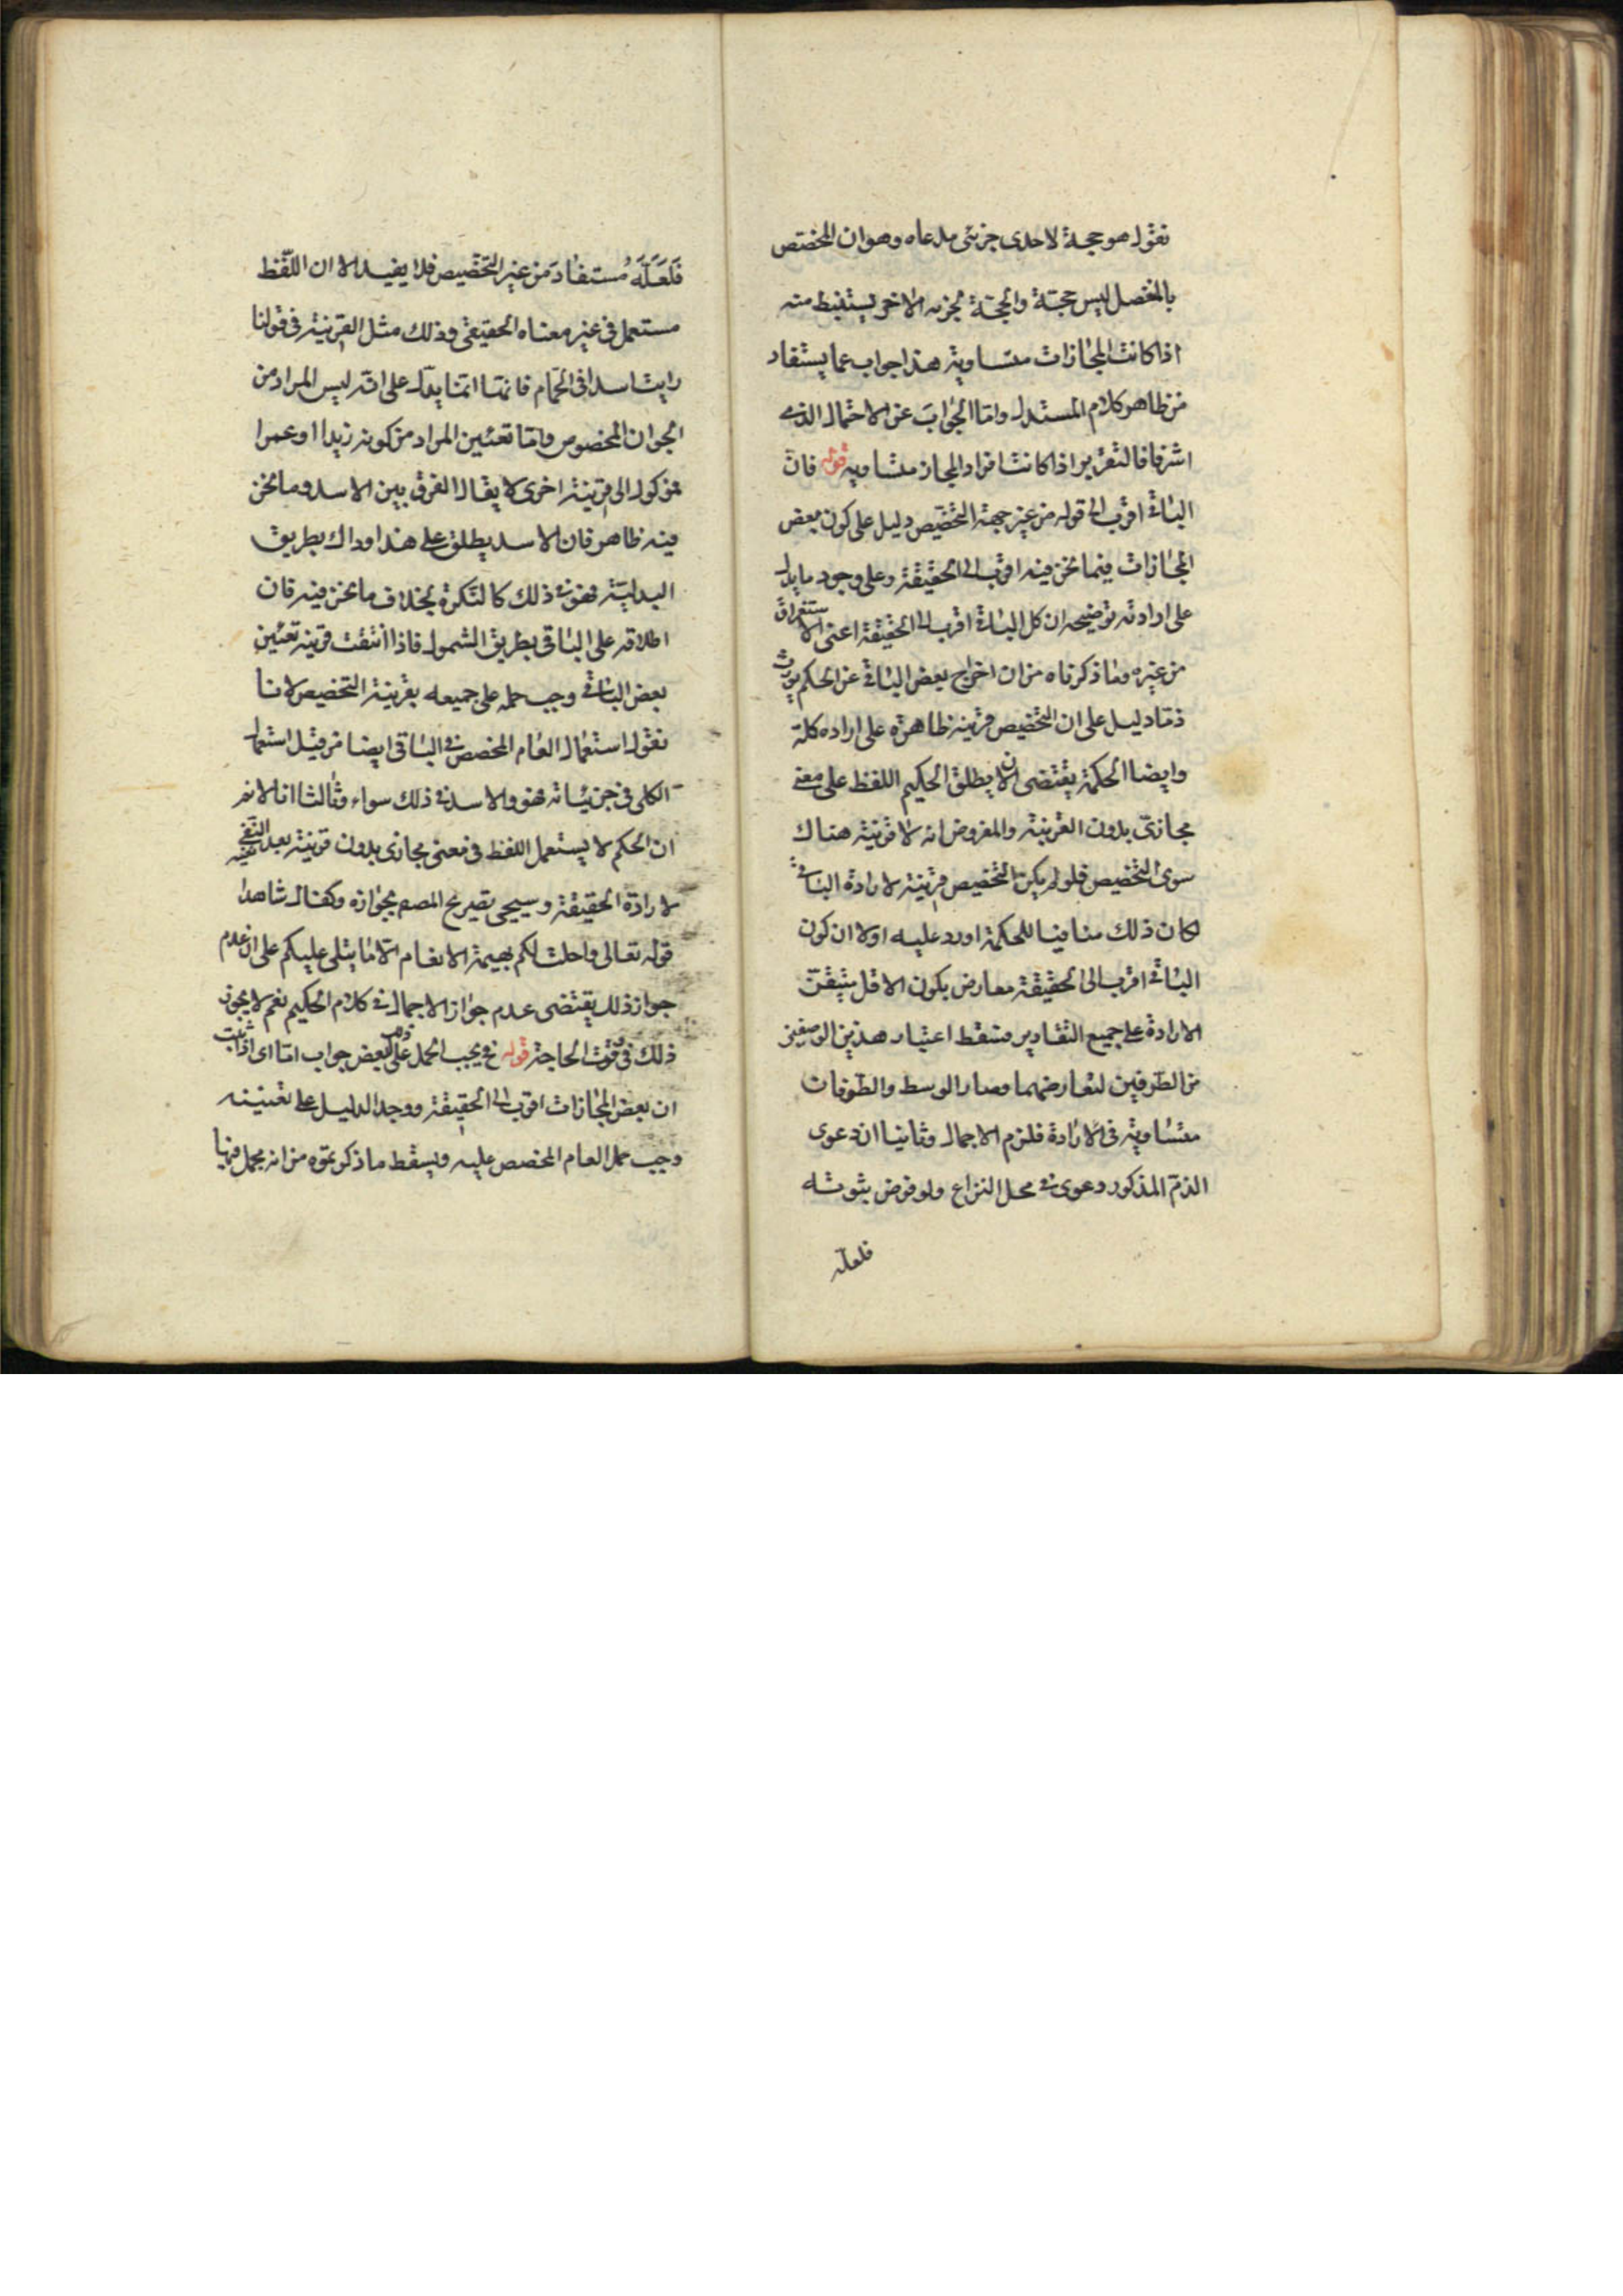 نقول هو حجة لاحدى جزئى مدعاه وهو ان المخصص
بالمفصل ليس حجة والحجة لجزئه الاخر يستنبط منه
اذا كانت المجازات متساوية هذا جواب عما يستفاد
من ظاهر كلام المستدل واما الجواب عن الاحتمال الذى
اشرنا فالتقرير اذا كانت افراد المجاز متساوية قوله فان
الباقى اقرب الى قوله من غير جهة التخصيص دليل على كون بعض
المجازات فيما نحن فيه اقرب الى الحقيقة وعلى وجود ما يدل
على ارادته توضيحه ان كل الباقى اقرب الى الحقيقة اعنى الاستغراق
من غيره وما ذكرناه من ان اخراج بعض الباقى عن الحكم يورث
ذما دليل على ان التخصيص قرينة ظاهرة على اراده كله
وايضا الحكمة يقتضى ان لا يطلق الحكيم اللفظ على معنى
مجازى بدون القرينة والمفروض انه لا قرينة هناك
سوى التخصيص فلو لم يكن التخصيص قرينة لارادة الباقى
لكان ذلك منافيا للحكمة اورد عليه اولا ان كون
الباقى اقرب الى الحقيقة معارض بكون الاقل متيقن
الارادة على جميع التقادير فسقط اعتبار هذين الوصفين
من الطرفين لتعارضهما وصار الوسط والطرفان
متساوية فى الارادة فلزم الاجمال وثانيا ان دعوى
الذم المذكور دعوى فى محل النزاع ولو فرض ثبوته
فلعله
فَلَعَلَّهُ مُستفاد من غير التخصيص فلا يفيد الا ان اللفظ
مستعمل فى غير معناه الحقيقى وذلك مثل القرينة فى قولنا
رايت اسدا فى الحمام فانها انما يدل على انه ليس المراد من
الحيوان المخصوص واما تعيين المراد من كونه زيدا او عمرا
فموكول الى قرينة اخرى لا يقال الفرق بين الاسد وما نحن
فيه ظاهر فان الاسد يطلق على هذا او ذاك بطريق
البدلية فهو فى ذلك كالنكرة بخلاف ما نحن فيه فان
اطلاقه على الباقى بطريق الشمول فاذا انتفت قرينة تعيين
بعض الباقى وجب حمله على جميعه بقرينة التخصيص لانا
نقول استعمال العام المخصص فى الباقى ايضا من قبيل استعمال
الكلى فى جزئياته فهو والاسد فى ذلك سواء وثالثا انا لا نم
ان الحكم لا يستعمل اللفظ فى معنى مجازى بدون قرينة بعد
لارادة الحقيقة وسيجى تصريح المصم بجوازه وكفاك شاهدا
قوله تعالى واحلت لكم بهيمة الانعام الا ما يتلى عليكم على ان عدم
جواز ذلك يقتضى عدم جواز الاجمال فى كلام الحكيم نعم لا يجوز
ذلك فى وقت الحاجة قوله فح يجب الحمل على بعض جواب اما اى اذا ثبت
ان بعض المجازات اقرب الى الحقيقة ووجد الدليل على تعيينه
وجب حمل العام المخصص عليه ويسقط ما ذكرتموه من انه مجمل فيها